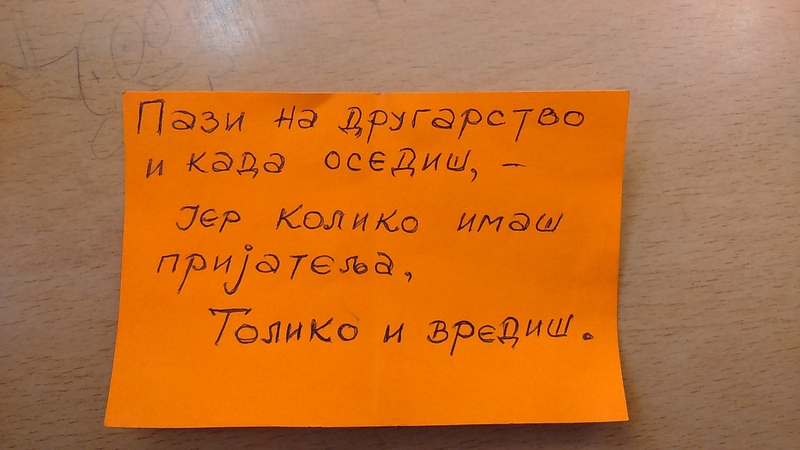 Пази на другарство
и када оседиш, –
јер колико имаш
пријатеља,
Толико и вредиш.